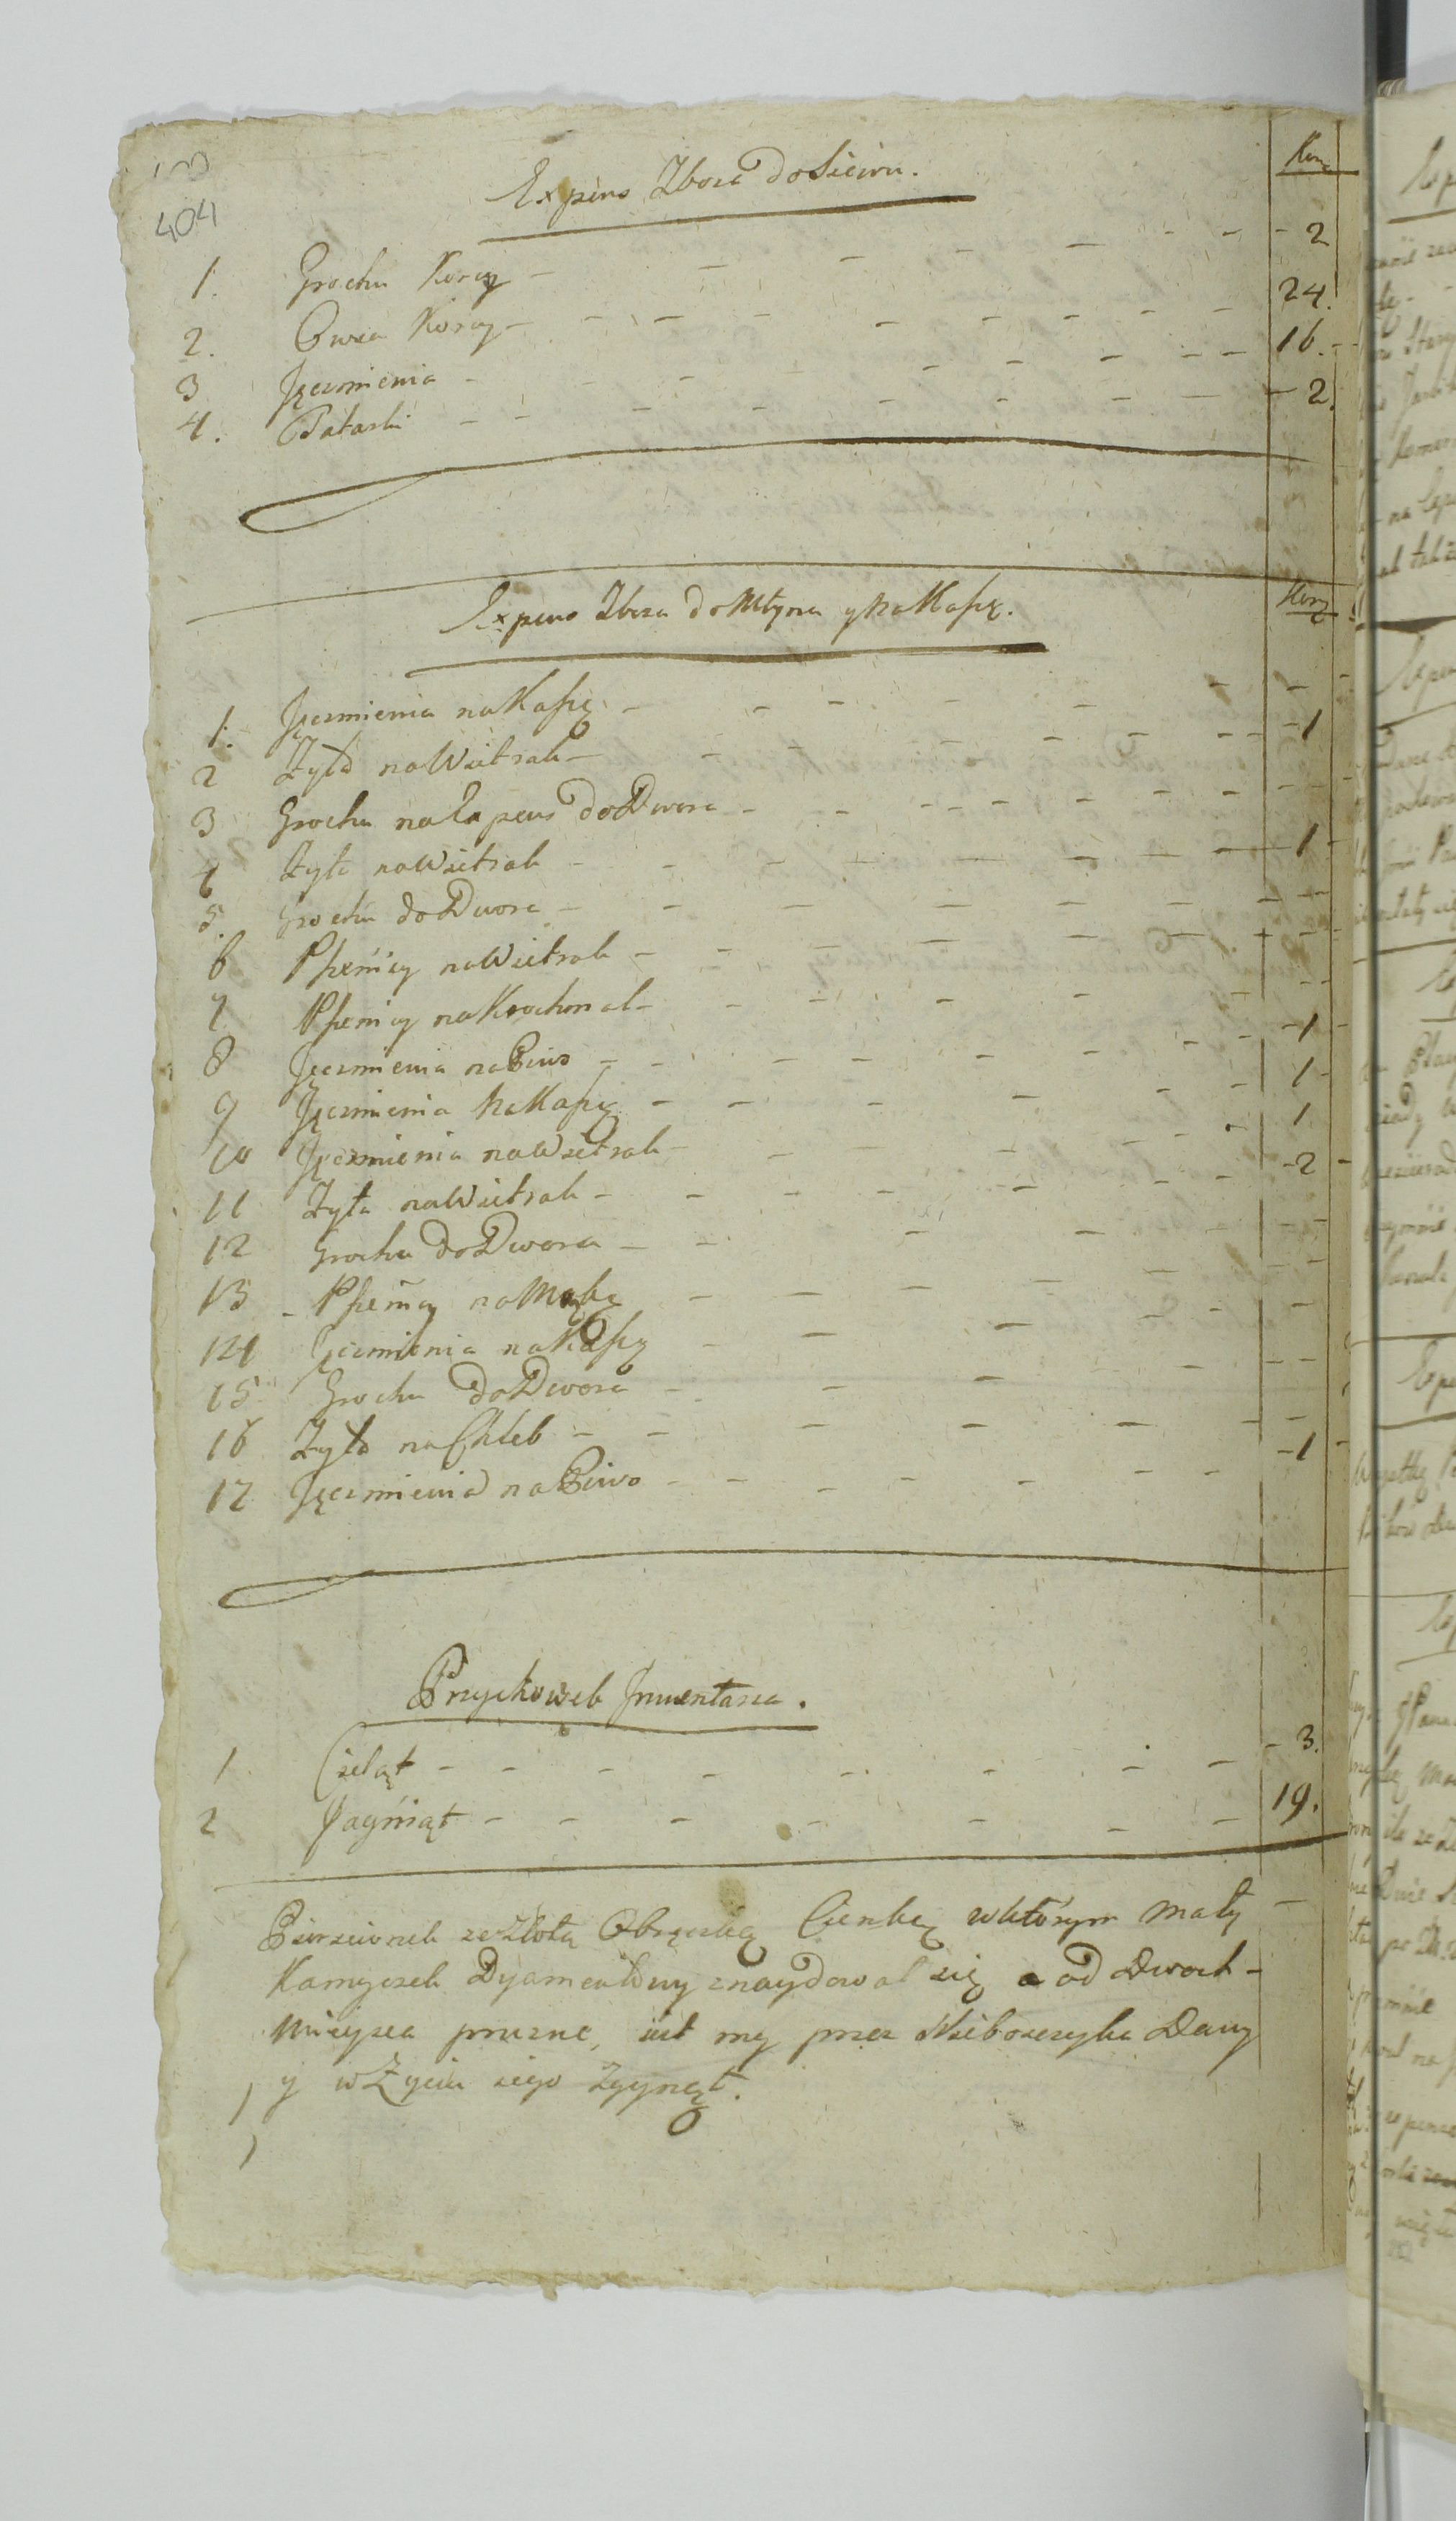 404
Expens Zboza do Siewu. Korc
1. Grochu Korcy - - - - - - - 2
2. Owsa Korcy - - - - - - - - 24.
3 Jęczmienia - - - - - - - 16.
4. Tatarki - - - - - - - - 2.
Expens Zboza do Młyna y na Kaszę. Korcy
1. Jęczmienia na Kaszę - - - - - -
2 Zyta na Wietrak - - - - - - - 1
3 Grochu na Expens do Dwora - - - - - - -
4 Zyta na Wietrak - - - - - - - 1
5. Grochu do Dwora - - - - - - -
6 Pszenicy na Wietrak - - - - - - -
7 Pszenicy na Krochmal - - - - - -
8 Jęczmienia na Piwo - - - - - - - 1
9 Jęczmienia na Kaszę - - - - - - 1
10 Jęczmienia na Wietrak - - - - - 1
11 Zyta na Wietrak - - - - - - - 2
12 Grochu do Dwora - - - - - -
13 - Pszenicy na Mąkę - - - - - -
14 Jęczmienia na Kaszę - - - - -
15 Grochu do Dwora - - - - - -
16 Zyta na Chleb - - - - - - -
17 Jęczmienia na Piwo - - - - - - 1
Przychowek Inwentarza.
1 Cieląt - - - - - - - - 3.
2 Jagniąt - - - - - - - 19.
Pierscionek ze Złotą Obrączką Cienką w którym Mały
Kamyczek Dyamentowy znaydował się a od Dwoch
Mieysca prozne, iest my przez Dany
y w Zyciu iego Zgynęł.